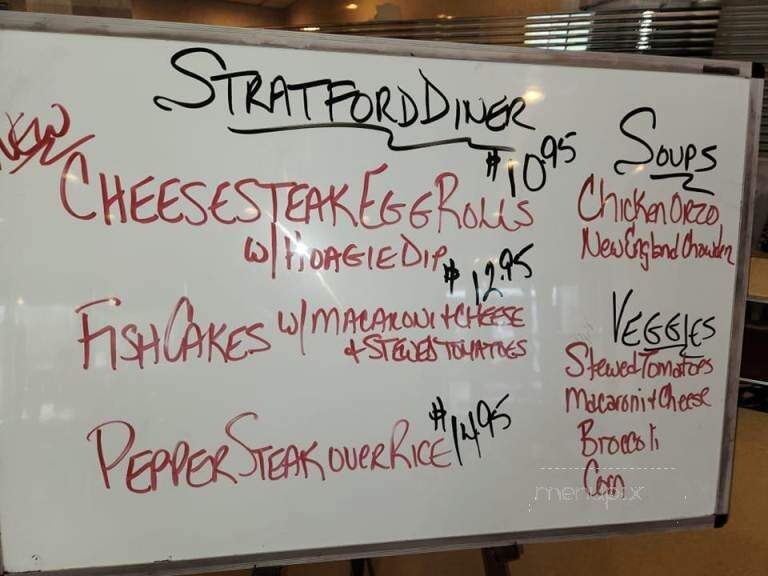 STRATFORD DINER
NEW
$10.95
CHEESESTEAK EGG ROLLS
W/ HOAGIE DIP
$12.95
FISH CAKES W/ MACARONI + CHEESE
+ STEWED TOMATOES
$14.95
PEPPER STEAK OVER RICE
SOUPS
Chicken Orzo
New England Chowder
VEGGIES
Stewed Tomatoes
Macaroni + Cheese
Broccoli
Corn
menupix